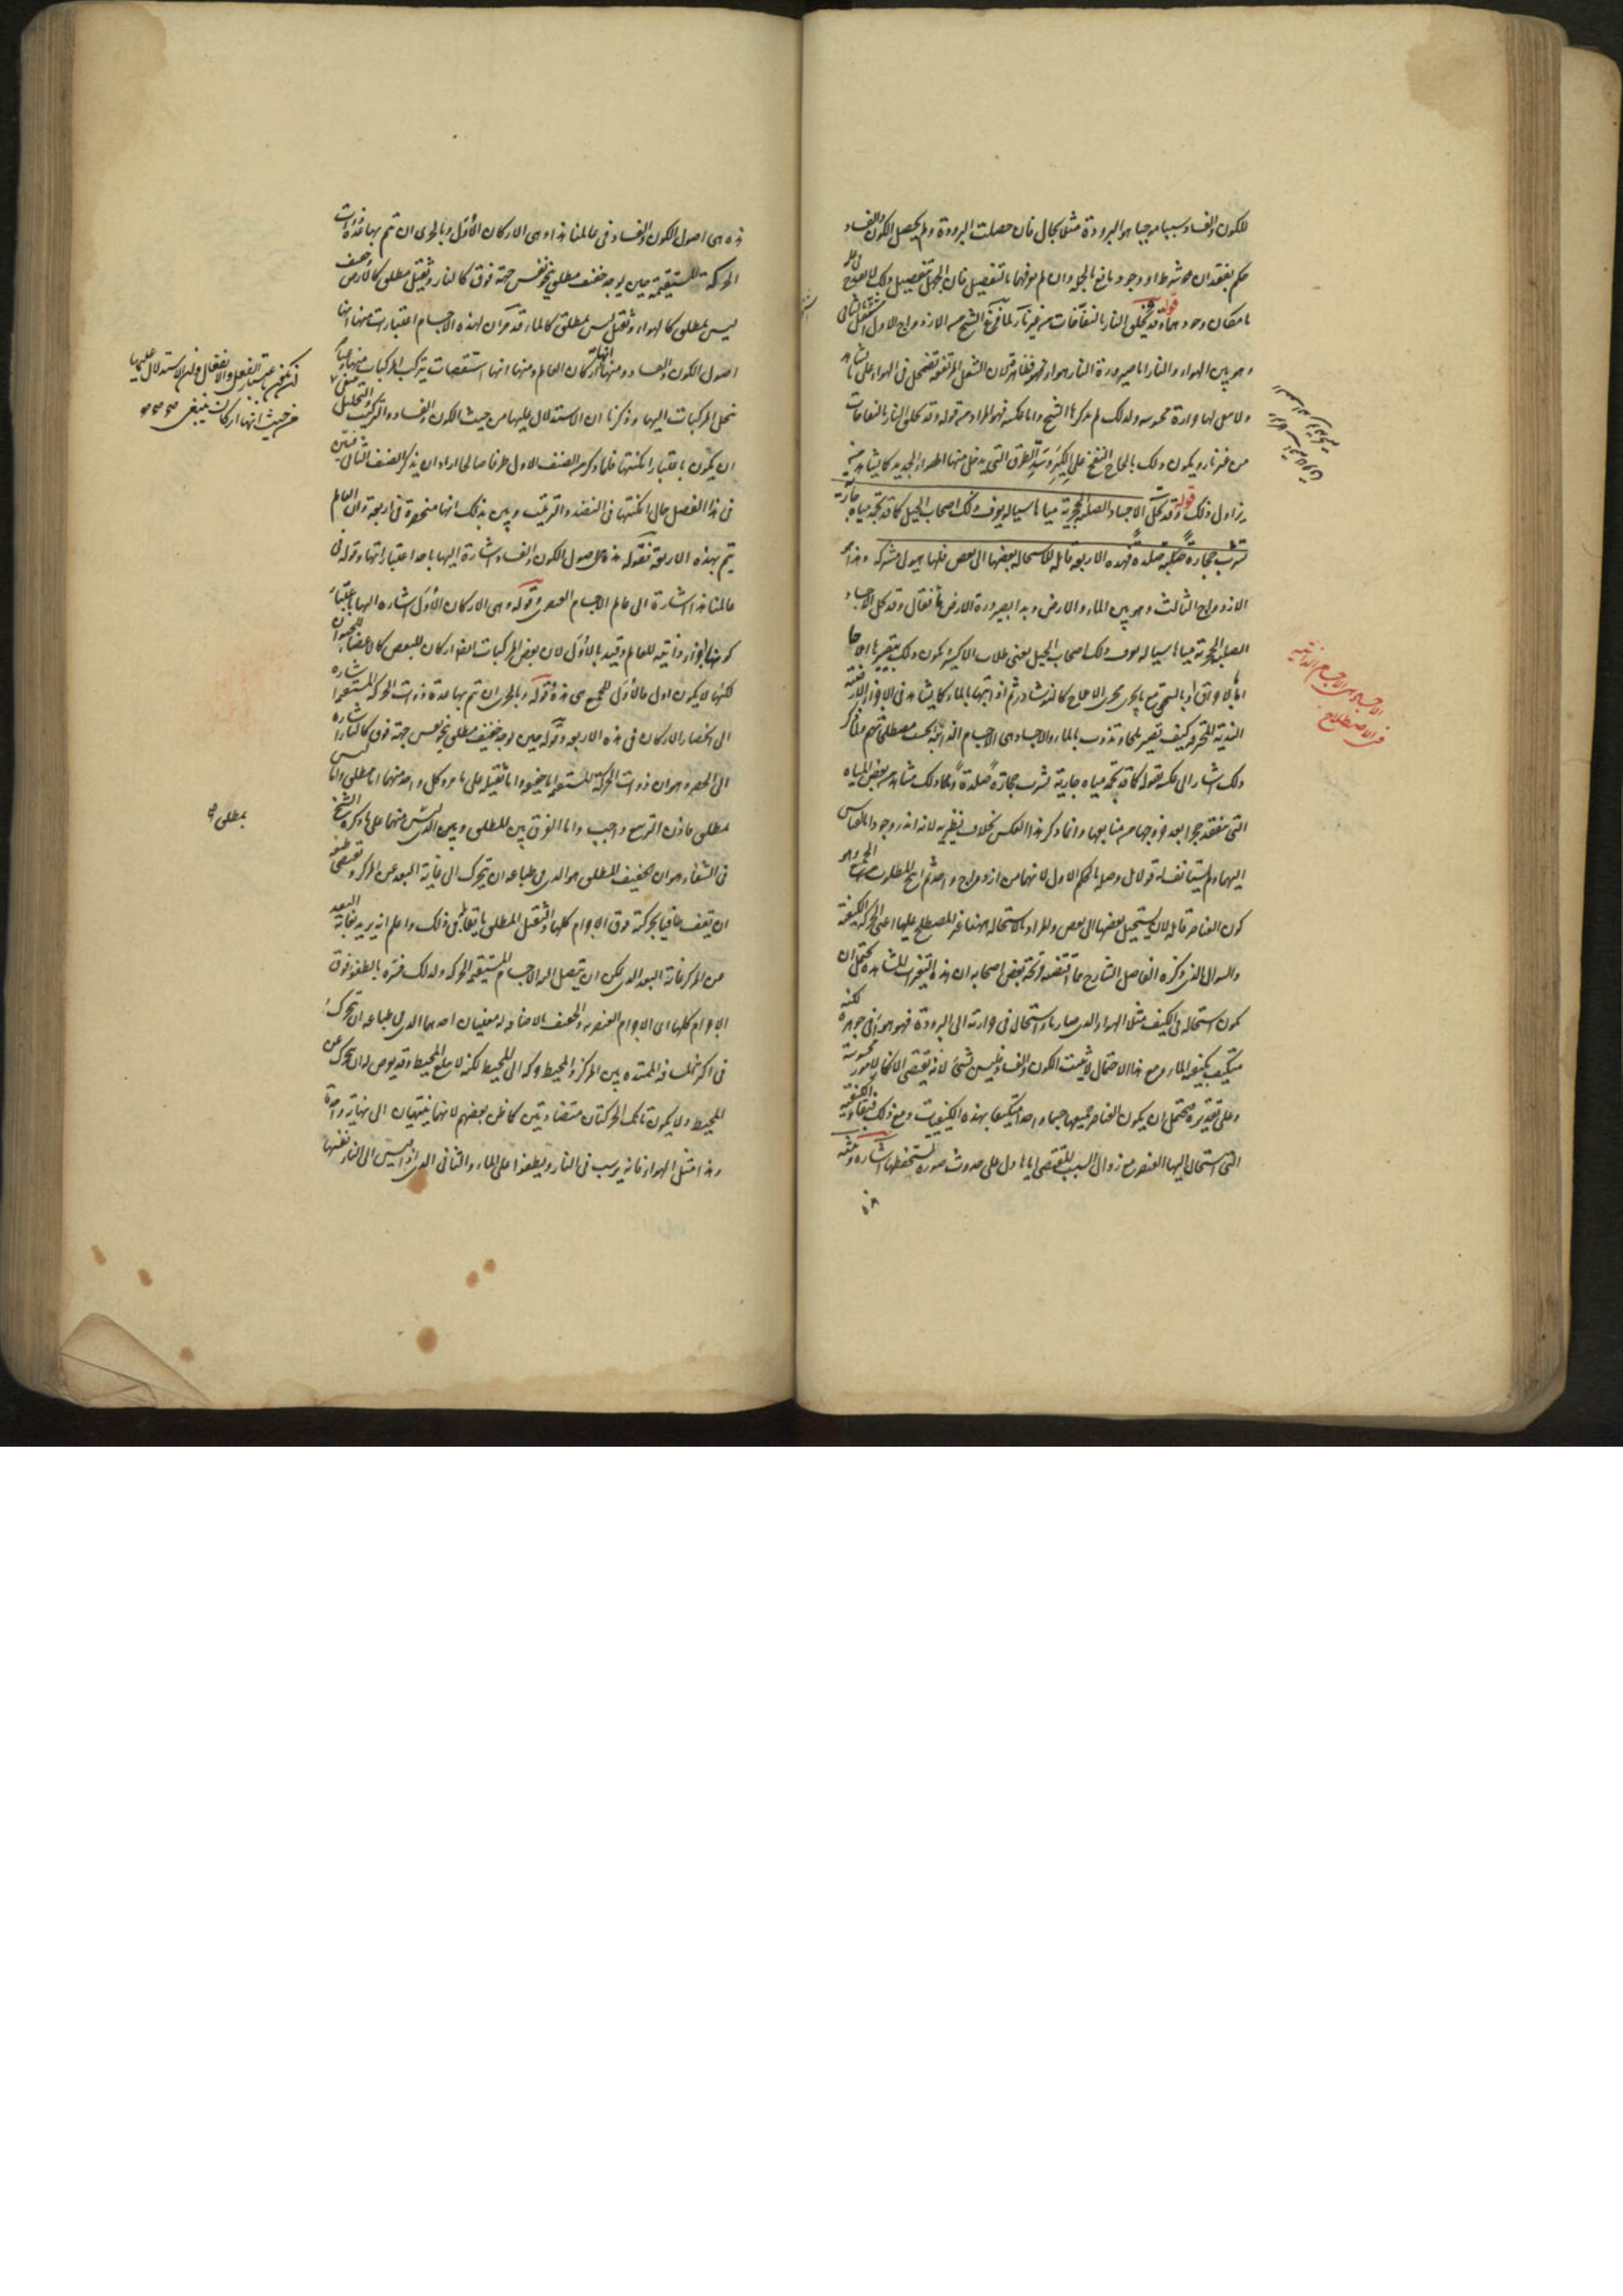 للكون والفساد سببا موجبا هو البرودة مثلا بحال فان حصلت البرودة ولم يحصل الكون والفساد
حكم بفقدان شرط او وجود مانع بالجملة وان لم يعرفهما بالتفصيل فان الجهل بتفصيل ذلك لا يقدح
بامكان وجودهما قوله وقد تخلق النار بالنفاخات من غير نار لما فرغ الشيخ من الازدواج الاول اشتغل بالثانى
وهو بين الهواء والنار اما صيرورة النار هواء فهو ظاهر لان الشعل المرتفعة تضمحل فى الهواء على ما يشاهد
ولذلك لم يذكرها الشيخ واما عكسه فهو المراد من قوله وقد تخلق النار بالنفاخات
من غير نار ويكون ذلك بالحاح النفخ على الكير وسد الطرق التى يدخل منها الهواء الجديد كما يشاهد من
يزاول ذلك قوله وقد تحل الاجساد الصلبة الحجرية مياها سيالة يعرف ذلك اصحاب الحيل كما قد تجمد مياه جارية
تشرب حجارة صلبة صلدة فهذه الاربعة قابلة للاستحالة بعضها الى بعض فلها هيولى مشتركة وهذا هو
الازدواج الثالث وهو بين الماء والارض وبدأ بصيرورة الارض ماء فقال وقد تحل الاجساد
الصلبة الحجرية مياها سيالة يعرف ذلك اصحاب الحيل يعنى طلاب الاكسير ويكون ذلك بتصييرها املاحا
اما بالاحراق او بالسحق مع ما يجرى مجرى الاملاح كالنوشادر ثم اذابتها بالماء كما يشاهد فى
الندية كيف تصير ملحا وتذوب بالماء والاجساد هى الاجسام الذائبة بحسب مصطلحهم ولما ذكر
ذلك اشار الى عكسه بقوله كما قد تجمد مياه جارية تشرب حجارة صلدة وذلك مشاهد من بعض المياه
التى تنعقد حجرا بعد خروجها من منابعها وانما ذكر هذا العكس بخلاف نظيريه لانه اندر وجودا بالقياس
اليهما ولم يستانف له قولا بل وصله بالحكم الاول لانهما من ازدواج واحد ثم انتج المطلوب وهو
كون العناصر قابلة لان يستحيل بعضها الى بعض والمراد بالاستحالة ههنا غير المصطلح عليها اعنى الحركة الكيفية
والسؤال الذى ذكره الفاضل الشارح بعض اصحابه ان هذه التغيرات المشاهدة تحتمل ان
تكون استحالة فى الكيف مثلا الهواء الذى صار ماء استحال فى حرارته الى البرودة فهو هواء فى جوهره لكنه
متكيف بكيفية الماء ومع هذا الاحتمال لا يثبت الكون والفساد ليس بشئ لانه يقتضى
وعلى تقديره يحتمل ان يكون العناصر جميعها جسما واحدا متكيفا بهذه الكيفيات ومع ذلك فبقاء الكيفية
التى استحال اليها العنصر مع زوال السبب المقتضى اياها دل على حدوث صورة تستحفظها اشارة وتنبيه
الاجساد هى الاجسام الذائبة
فى الاصطلاح
هذه هى اصول الكون والفساد فى عالمنا هذا وهى الاركان الاول وبالحرى ان تتم بها عدة ذوات
الحركة المستقيمة حين يوجد خفيف مطلق ينحو نفس جهة فوق كالنار وثقيل مطلق كالارض وخفيف
ليس بمطلق كالهواء وثقيل ليس بمطلق كالماء قد مر ان لهذه الاجسام اعتبارات منها انها
اصول الكون والفساد ومنها انها اركان العالم ومنها انها استقصات يتركب المركبات منها ومنها
تنحل المركبات اليها وذكرنا ان الاستدلال عليها من حيث الكون والفساد والتركيب والتحليل
ان يكون باعتبار امكنتها فلما ذكر من الصنف الاول طرفا صالحا اراد ان يذكر الصنف الثانى فبين
فى هذا الفصل حال امكنتها فى النضد والترتيب وبين بذلك انها منحصرة فى اربعة وان العالم
يتم بهذه الاربعة فقوله هذه هى اصول الكون والفساد اشارة اليها باحد اعتباراتها وقوله فى
عالمنا هذا اشارة الى عالم الاجسام العنصرى وقوله وهى الاركان الاول اشارة اليها باعتبار
كونها اجزاء ذاتية للعالم وقيد بالاول لان بعض المركبات ايضا اركان للبعض كالاعضاء للحيوان
لكنها لا يكون اول فالاول للجميع هى هذه وقوله وبالحرى ان تتم بها عدة ذوات الحركة المستقيمة اشارة
الى انحصار الاركان فى هذه الاربعة وقوله حين يوجد خفيف مطلق ينحو نفس جهة فوق كالنار اشارة
الى الحصر وهو ان ذوات الحركة المستقيمة اما خفيفة واما ثقيلة على ما مر وكل واحد منهما اما مطلق واما ليس
بمطلق فاذن التربيع واجب واما الفرق بين المطلق وبين الذى ليس منهما على ما ذكره الشيخ
فى الشفاء وهو ان الخفيف المطلق هو الذى فى طباعه ان يتحرك الى غاية البعد عن المركز ويقتضى طبعه
ان يقف طافيا بحركته فوق الاجرام كلها والثقيل المطلق ما يقابل ذلك واعلم انه يريد بغاية البعد
عن المركز غاية البعد الذى يمكن ان يصل اليه الاجسام المستقيمة الحركة ولذلك فسره بالطفو فوق
الاجرام كلها اى الاجرام العنصرية والخفيف بالاضافة له معنيان احدهما الذى فى طباعه ان يتحرك
فى اكثر المسافة الممتدة بين المركز والمحيط حركة الى المحيط لكنه لا يبلغ المحيط وقد يعرض له ان يتحرك عن
المحيط ولا يكون تانك الحركتان متضادتين كما ظن بعضهم لانهما ينتهيان الى نهاية واحدة
وهذا مثل الهواء فانه يرسب فى النار ويطفو على الماء والثانى الذى اذا قيس الى النار نفسها
باعتبار الفعل والانفعال وان الاستدلال عليها
من حيث انها اركان ينبغى
بمطلق